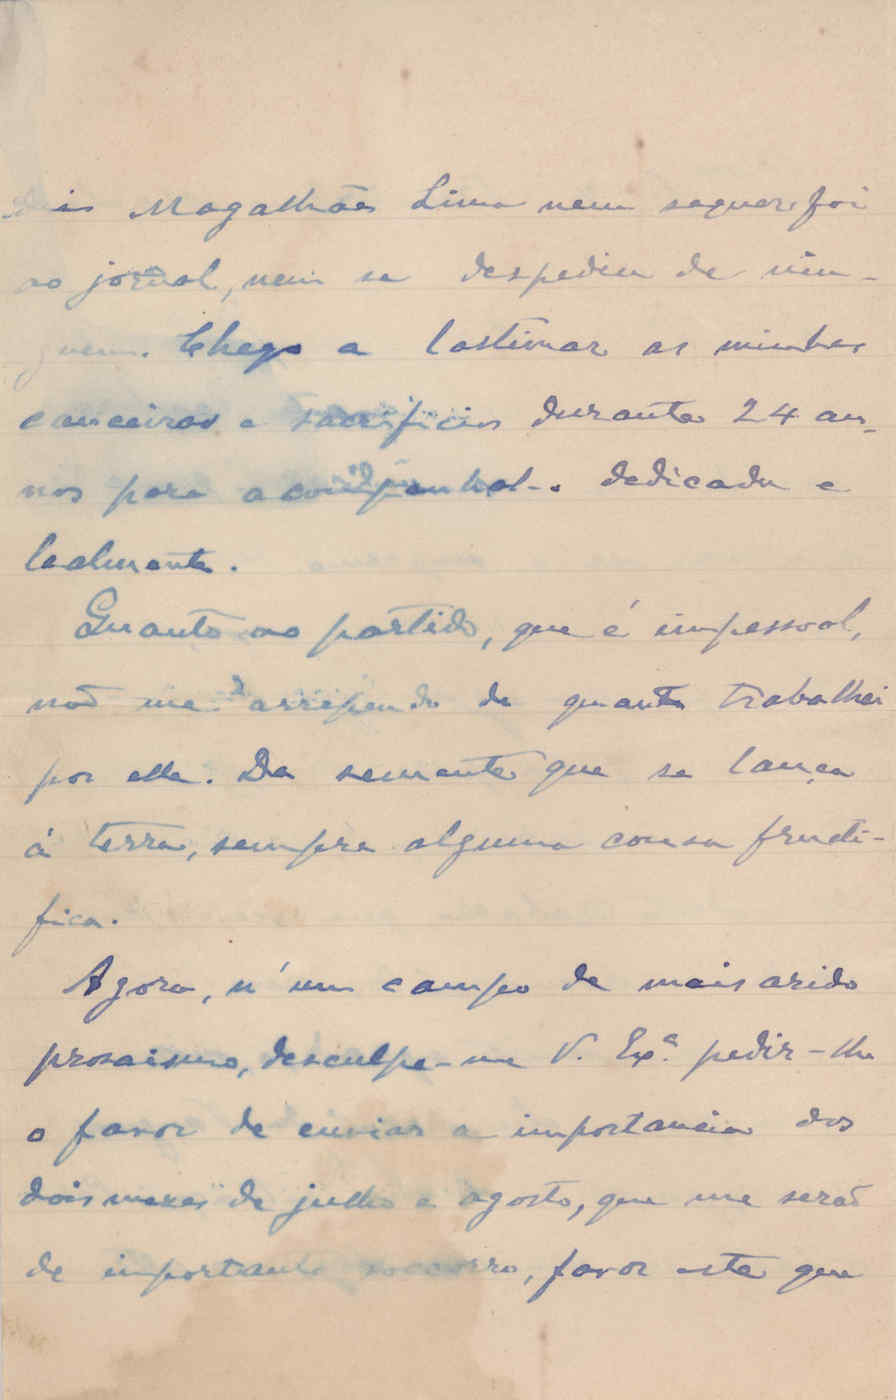 Magalhães Lima nem sequer foi
ao jornal, nem se despediu de nin-
guem. Chego a lastimar as minhas
canceiras e sacrificios durante 24 an-
nos para acompanhal-o dedicada e
lealmente.
Quanto ao partido, que é impessoal,
não me arrependo de quanto trabalhei
por elle. Da semente que se lança
á terra, sempre alguma cousa fructi-
fica.
Agora, n'um campo de mais arido
prosaismo, desculpe-me V. Exª pedir-lhe
o favor de enviar a importancia dos
dois mezes de julho e agosto, que me serão
de importante soccorro, favor este que